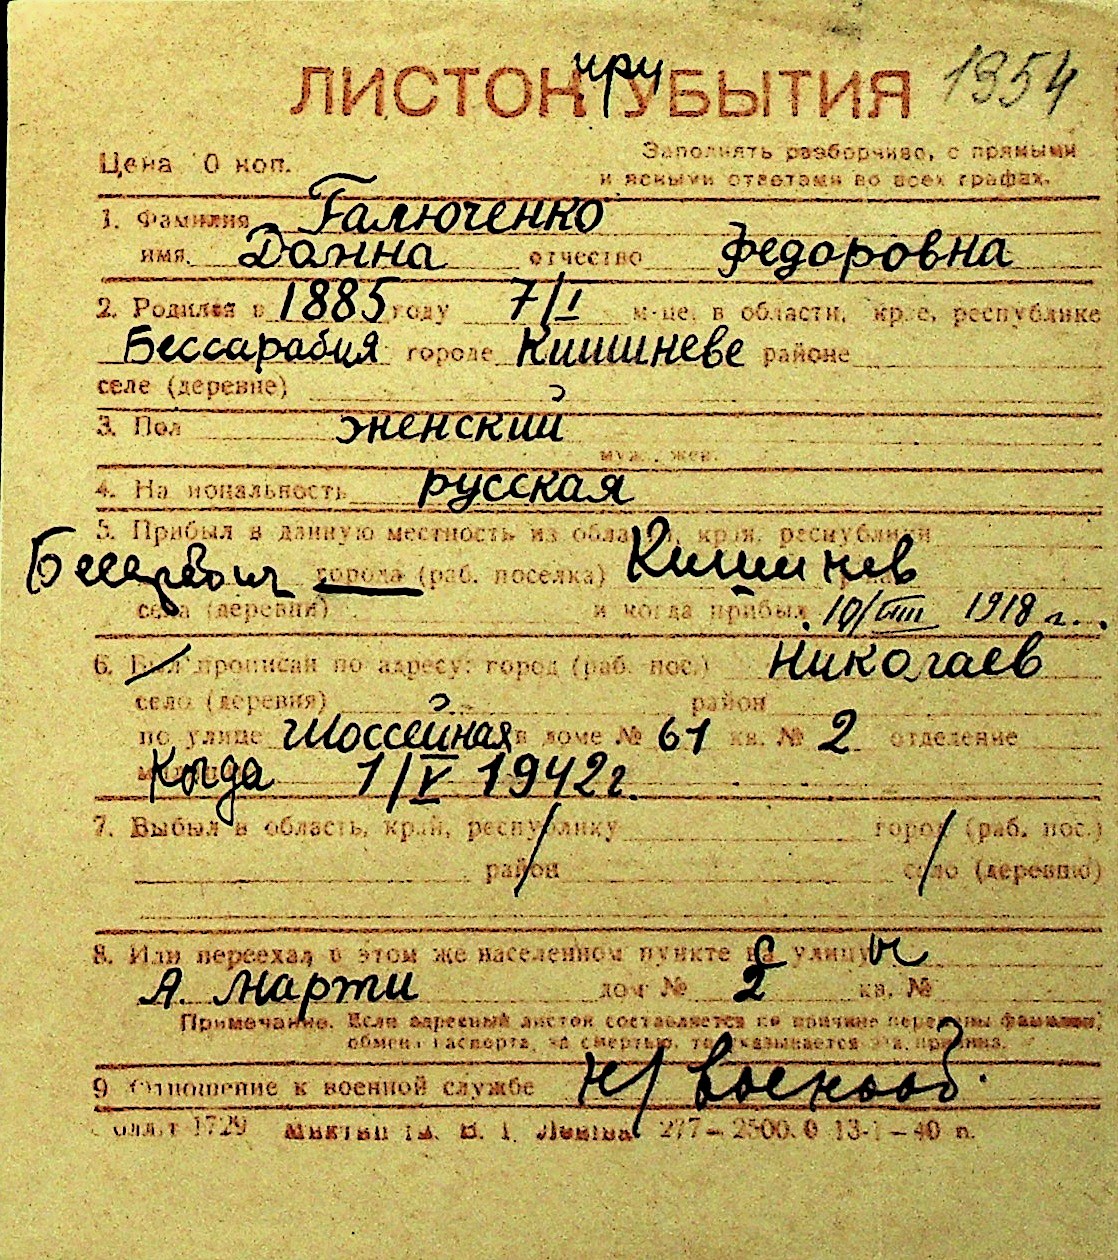 ЛИСТОК при УБЫТИЯ 1354
Цена 10 коп. Заполнять разборчиво, с прямыми
и ясными ответами во всех графах.
1. Фамилия Галюченко
имя Домна отчество Федоровна
2. Родился в 1885 году 7/I м-це, в области, крае, республике
Бессарабия городе Кишиневе районе
селе (деревне)
3. Пол женский
муж., жен.
4. Национальность русская
5. Прибыл в данную местность из области, края, республики
Бессарабии города (раб. поселка) Кишинев
села (деревни) и когда прибыл 10/VIII 1918 г.
6. Был прописан по адресу: город (раб. пос.) Николаев
село (деревня) район
по улице Шоссейная в доме № 61 кв. № 2 отделение
Когда 1/V 1942 г.
7. Выбыл в область, край, республику город (раб. пос.)
район село (деревню)
8. Или переехал в этом же населенном пункте с улицы
А. Марти дом № 2 кв. №
Примечание. Если адресный листок составляется по причине перемены фамилии,
обмена паспорта, за смертью, то указывается эта причина.
9. Отношение к военной службе н/военнооб.
1729 им. В. И. Ленина 277–2500.0 13-I–40 г.